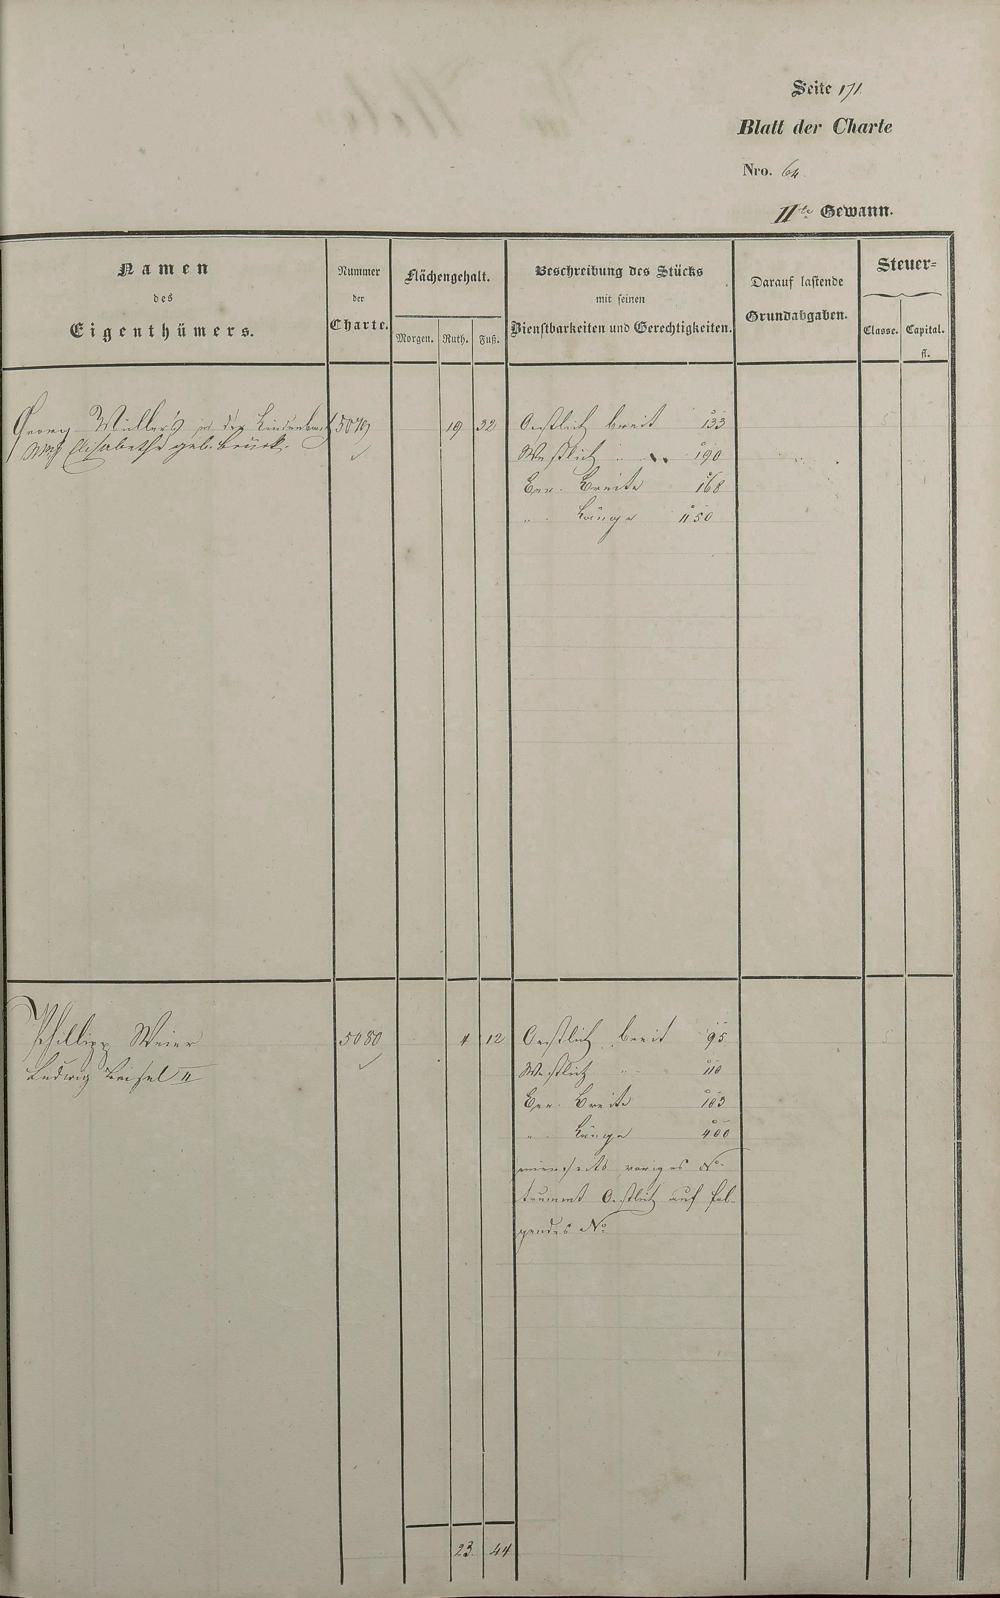 Seite 171
Blatt der Charte
Nro. 64
IIte Gewann.
Namen
des
Eigenthümers.
Nummer
der
Charte.
Flächengehalt.
Morgen. Ruth. Fuß.
Beschreibung des Stücks
mit seinen
Dienstbarkeiten und Gerechtigkeiten.
Darauf lastende
Grundabgaben.
Steuer=
Classe. Capital.
fl.
Georg Müller's in der Lindenbach 5079 19 32 Oestlich breit 133
Elisabetha geb. Brück. Westlich " " 190
Ger. Breite 168
" Länge 1150
Phillipp Weier 5080 4 12 Oestlich breit 95
Ludwig Beisel II Westlich " " 110
Ger. Breite 103
" Länge 400
einerseits voriges No.
Oestlich auf fol-
gendes No.
23 44